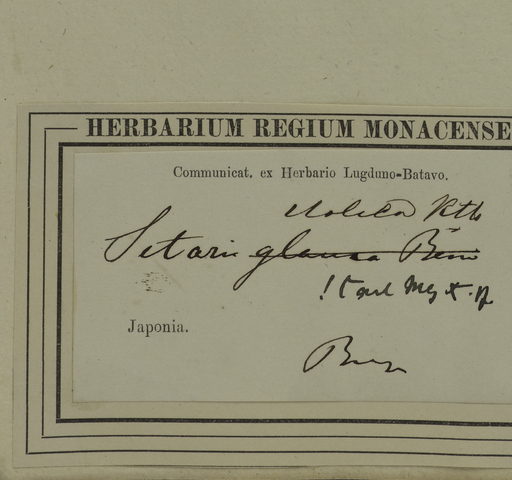 HERBARIUM REGIUM MONACENSE
Communicat. ex Herbario Lugduno-Batavo.
italica Kth
Setaria glauca Beauv
! Carl Mez
Japonia.
Buerger